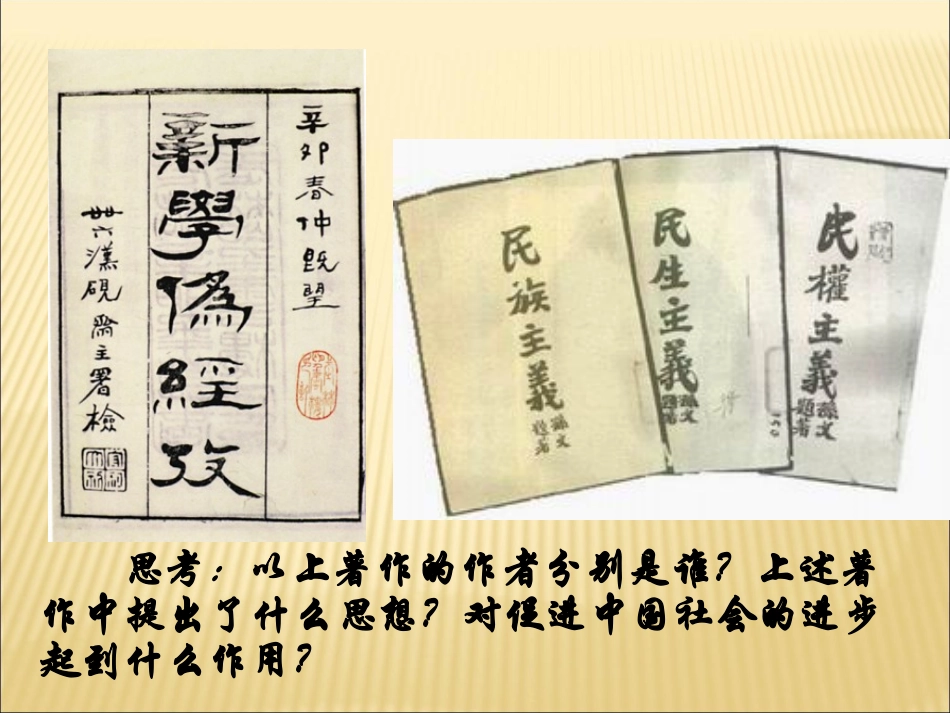 辛卯春仲既望
新學偽經攷
卌六漢硯齋主署檢
民族主義
孫文
題著
民生主義
孫文
民權主義
孫文
題著
思考：以上著作的作者分别是谁？上述著
作中提出了什么思想？对促进中国社会的进步
起到什么作用？